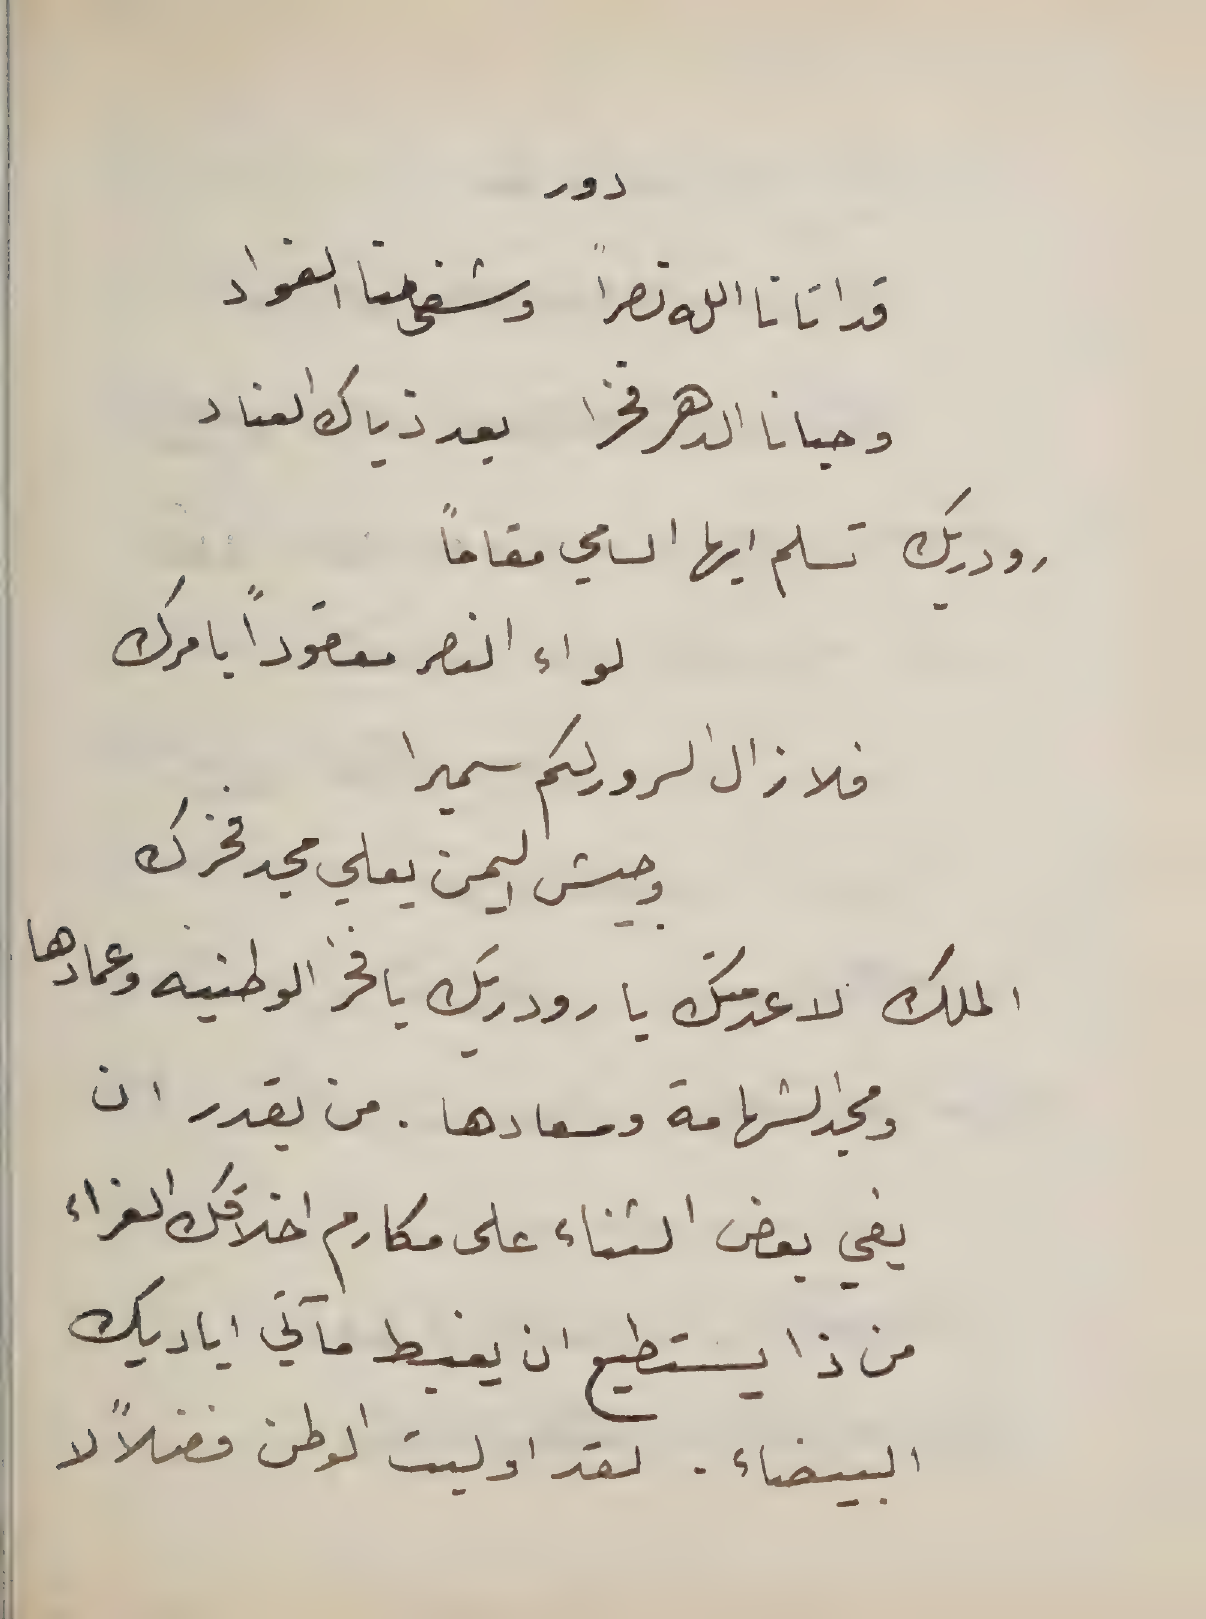 دور
قد اتانا الله نصراً وشفى منا الفواد
وحبانا الدهر فخرا بعد ذياك العناد
رودريك تسلم ايها السامي مقاماً
لواء النصر معقوداً يامرك
فلا زال السرور لكم سميرا
وجيش اليمن يعلي مجد فخرك
الملك لا عدمتك يا رودريك يا فخر الوطنيه وعمادها
ومجد الشهامة وسعادها . من يقدر ان
يفي بعض الثناء على مكارم اخلاقك الغراء
من ذا يستطيع ان يغبط مآتي اياديك
البيضاء . لقد اوليت الوطن فضلاً لا